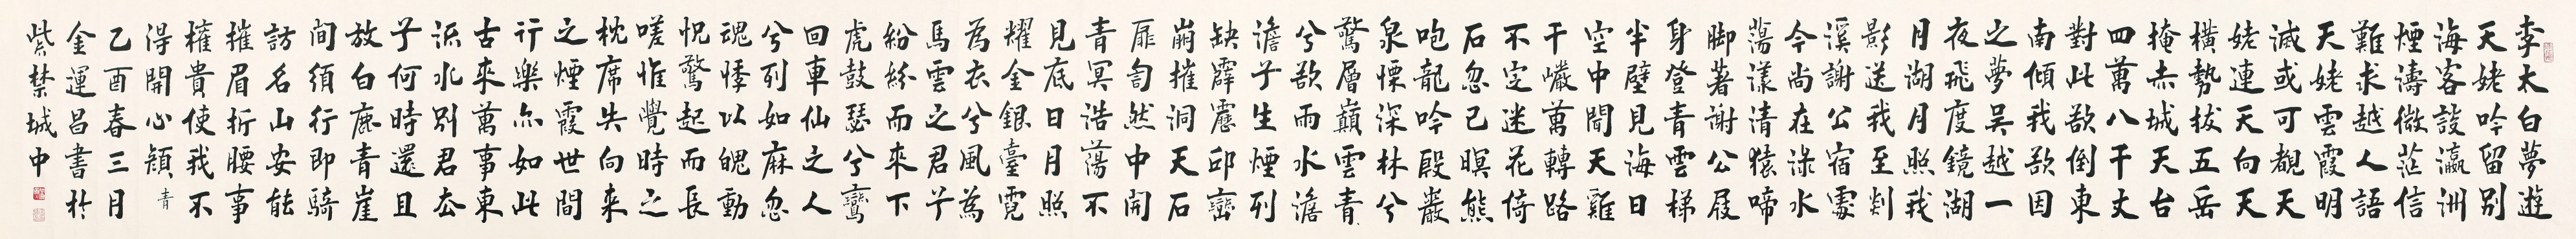 李太白夢遊
天姥吟留別
海客談瀛洲
煙濤微茫信
難求越人語
天姥雲霞明
滅或可覩天
姥連天向天
橫勢拔五岳
掩赤城天台
四萬八千丈
對此欲倒東
南傾我欲因
之夢吳越一
夜飛度鏡湖
月湖月照我
影送我至剡
溪謝公宿處
今尚在淥水
蕩漾清猿啼
脚著謝公屐
身登青雲梯
半壁見海日
空中聞天雞
千巖萬轉路
不定迷花倚
石忽已暝熊
咆龍吟殷巖
泉慄深林兮
驚層巔雲青
兮欲雨水澹
澹子生煙列
缺霹靂邱巒
崩摧洞天石
扉訇然中開
青冥浩蕩不
見底日月照
耀金銀臺霓
為衣兮風為
馬雲之君子
紛紛而來下
虎鼓瑟兮鸞
回車仙之人
兮列如麻忽
魂悸以魄動
怳驚起而長
嗟惟覺時之
枕席失向來
之煙霞世間
行樂亦如此
古來萬事東
流水別君去
子何時還且
放白鹿青崖
間須行即騎
訪名山安能
摧眉折腰事
權貴使我不
得開心顏 青
乙酉春三月
金運昌書於
紫禁城中